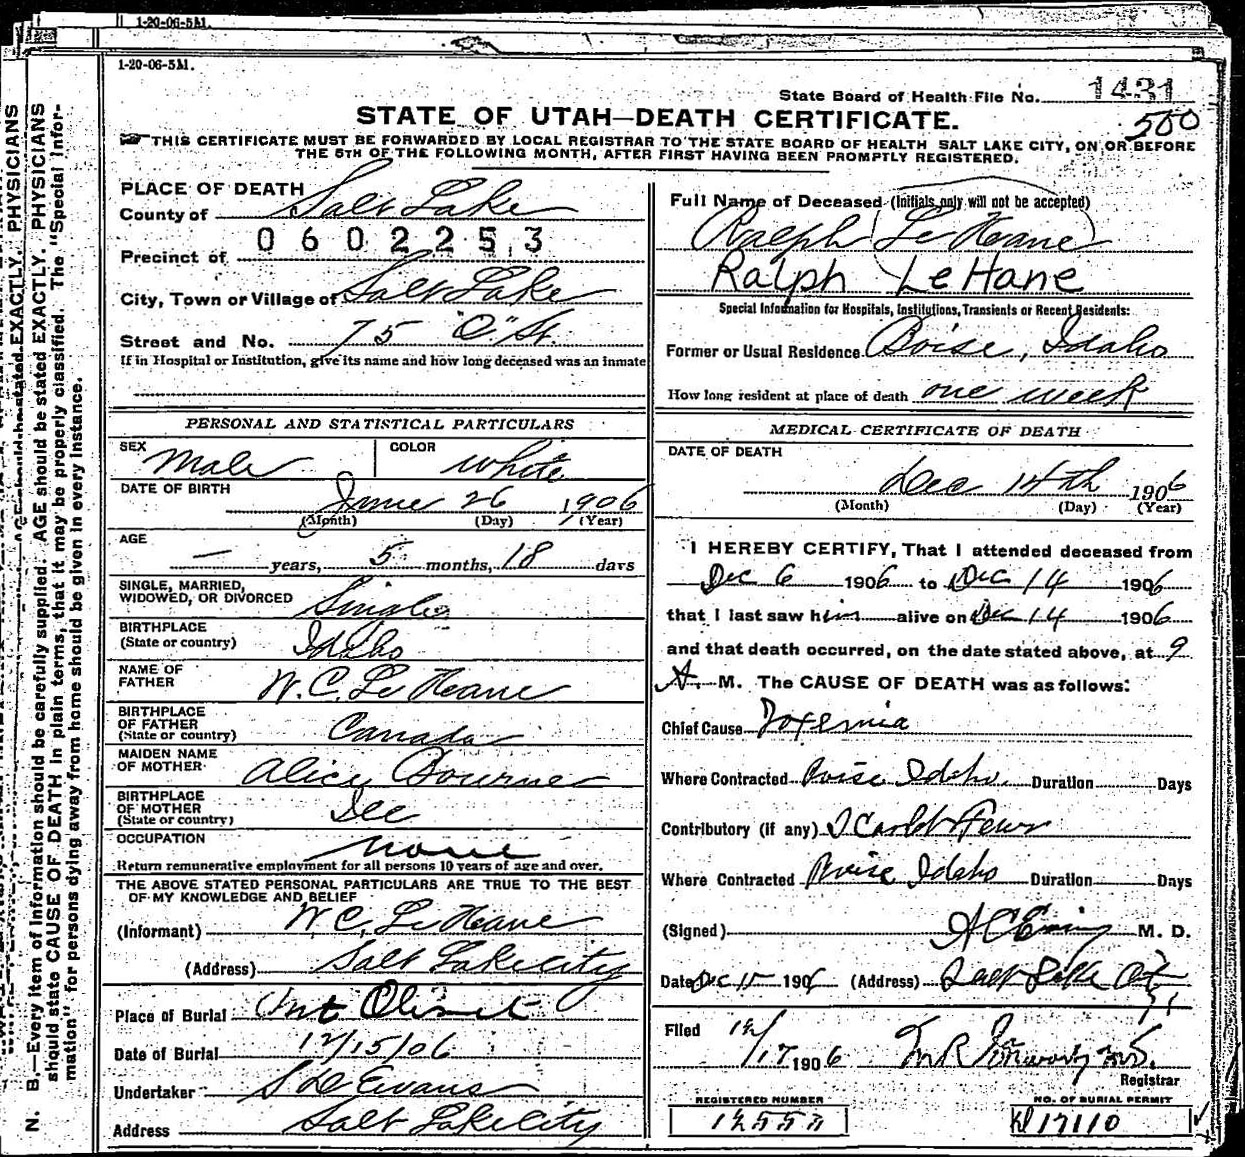 1-20-06-5M.
1-20-06-5M.
State Board of Health File No. 1431
STATE OF UTAH—DEATH CERTIFICATE.
500
THIS CERTIFICATE MUST BE FORWARDED BY LOCAL REGISTRAR TO THE STATE BOARD OF HEALTH SALT LAKE CITY, ON OR BEFORE
THE 5TH OF THE FOLLOWING MONTH, AFTER FIRST HAVING BEEN PROMPTLY REGISTERED.
PLACE OF DEATH
County of Salt Lake
0602253
Precinct of
City, Town or Village of Salt Lake
Street and No. 75 "O" St.
If in Hospital or Institution, give its name and how long deceased was an inmate
Full Name of Deceased (Initials only will not be accepted)
Ralph Le Heane
Ralph LeHane
Special Information for Hospitals, Institutions, Transients or Recent Residents:
Former or Usual Residence Boise, Idaho
How long resident at place of death one week
PERSONAL AND STATISTICAL PARTICULARS
SEX Male COLOR White
DATE OF BIRTH June 26 1906
(Month) (Day) (Year)
AGE — years, 5 months, 18 days
SINGLE, MARRIED,
WIDOWED, OR DIVORCED Single
BIRTHPLACE
(State or country) Idaho
NAME OF
FATHER W. C. Le Heane
BIRTHPLACE
OF FATHER
(State or country) Canada
MAIDEN NAME
OF MOTHER Alice Bourne
BIRTHPLACE
OF MOTHER
(State or country)
OCCUPATION None
Return remunerative employment for all persons 10 years of age and over.
THE ABOVE STATED PERSONAL PARTICULARS ARE TRUE TO THE BEST
OF MY KNOWLEDGE AND BELIEF
(Informant) W. C. Le Heane
(Address) Salt Lake City
Place of Burial Mt Olivet
Date of Burial 12/15/06
Undertaker Evans
Address Salt Lake City
MEDICAL CERTIFICATE OF DEATH
DATE OF DEATH
Dec 14th 1906
(Month) (Day) (Year)
I HEREBY CERTIFY, That I attended deceased from
Dec 6 1906 to Dec 14 1906
that I last saw him alive on Dec 14 1906
and that death occurred, on the date stated above, at 9
A. M. The CAUSE OF DEATH was as follows:
Chief Cause Toxemia
Where Contracted Boise Idaho Duration Days
Contributory (if any) Scarlet Fever
Where Contracted Boise Idaho Duration Days
(Signed) A C Ewing M. D.
Date Dec 15 1906 (Address) Salt Lake City
Filed 12/17 1906
Registrar
REGISTERED NUMBER
NO. OF BURIAL PERMIT
17110
N. B.—Every item of information should be carefully supplied. AGE should be stated EXACTLY. PHYSICIANS
should state CAUSE OF DEATH in plain terms, that it may be properly classified. The "Special Infor-
mation" for persons dying away from home should be given in every instance.